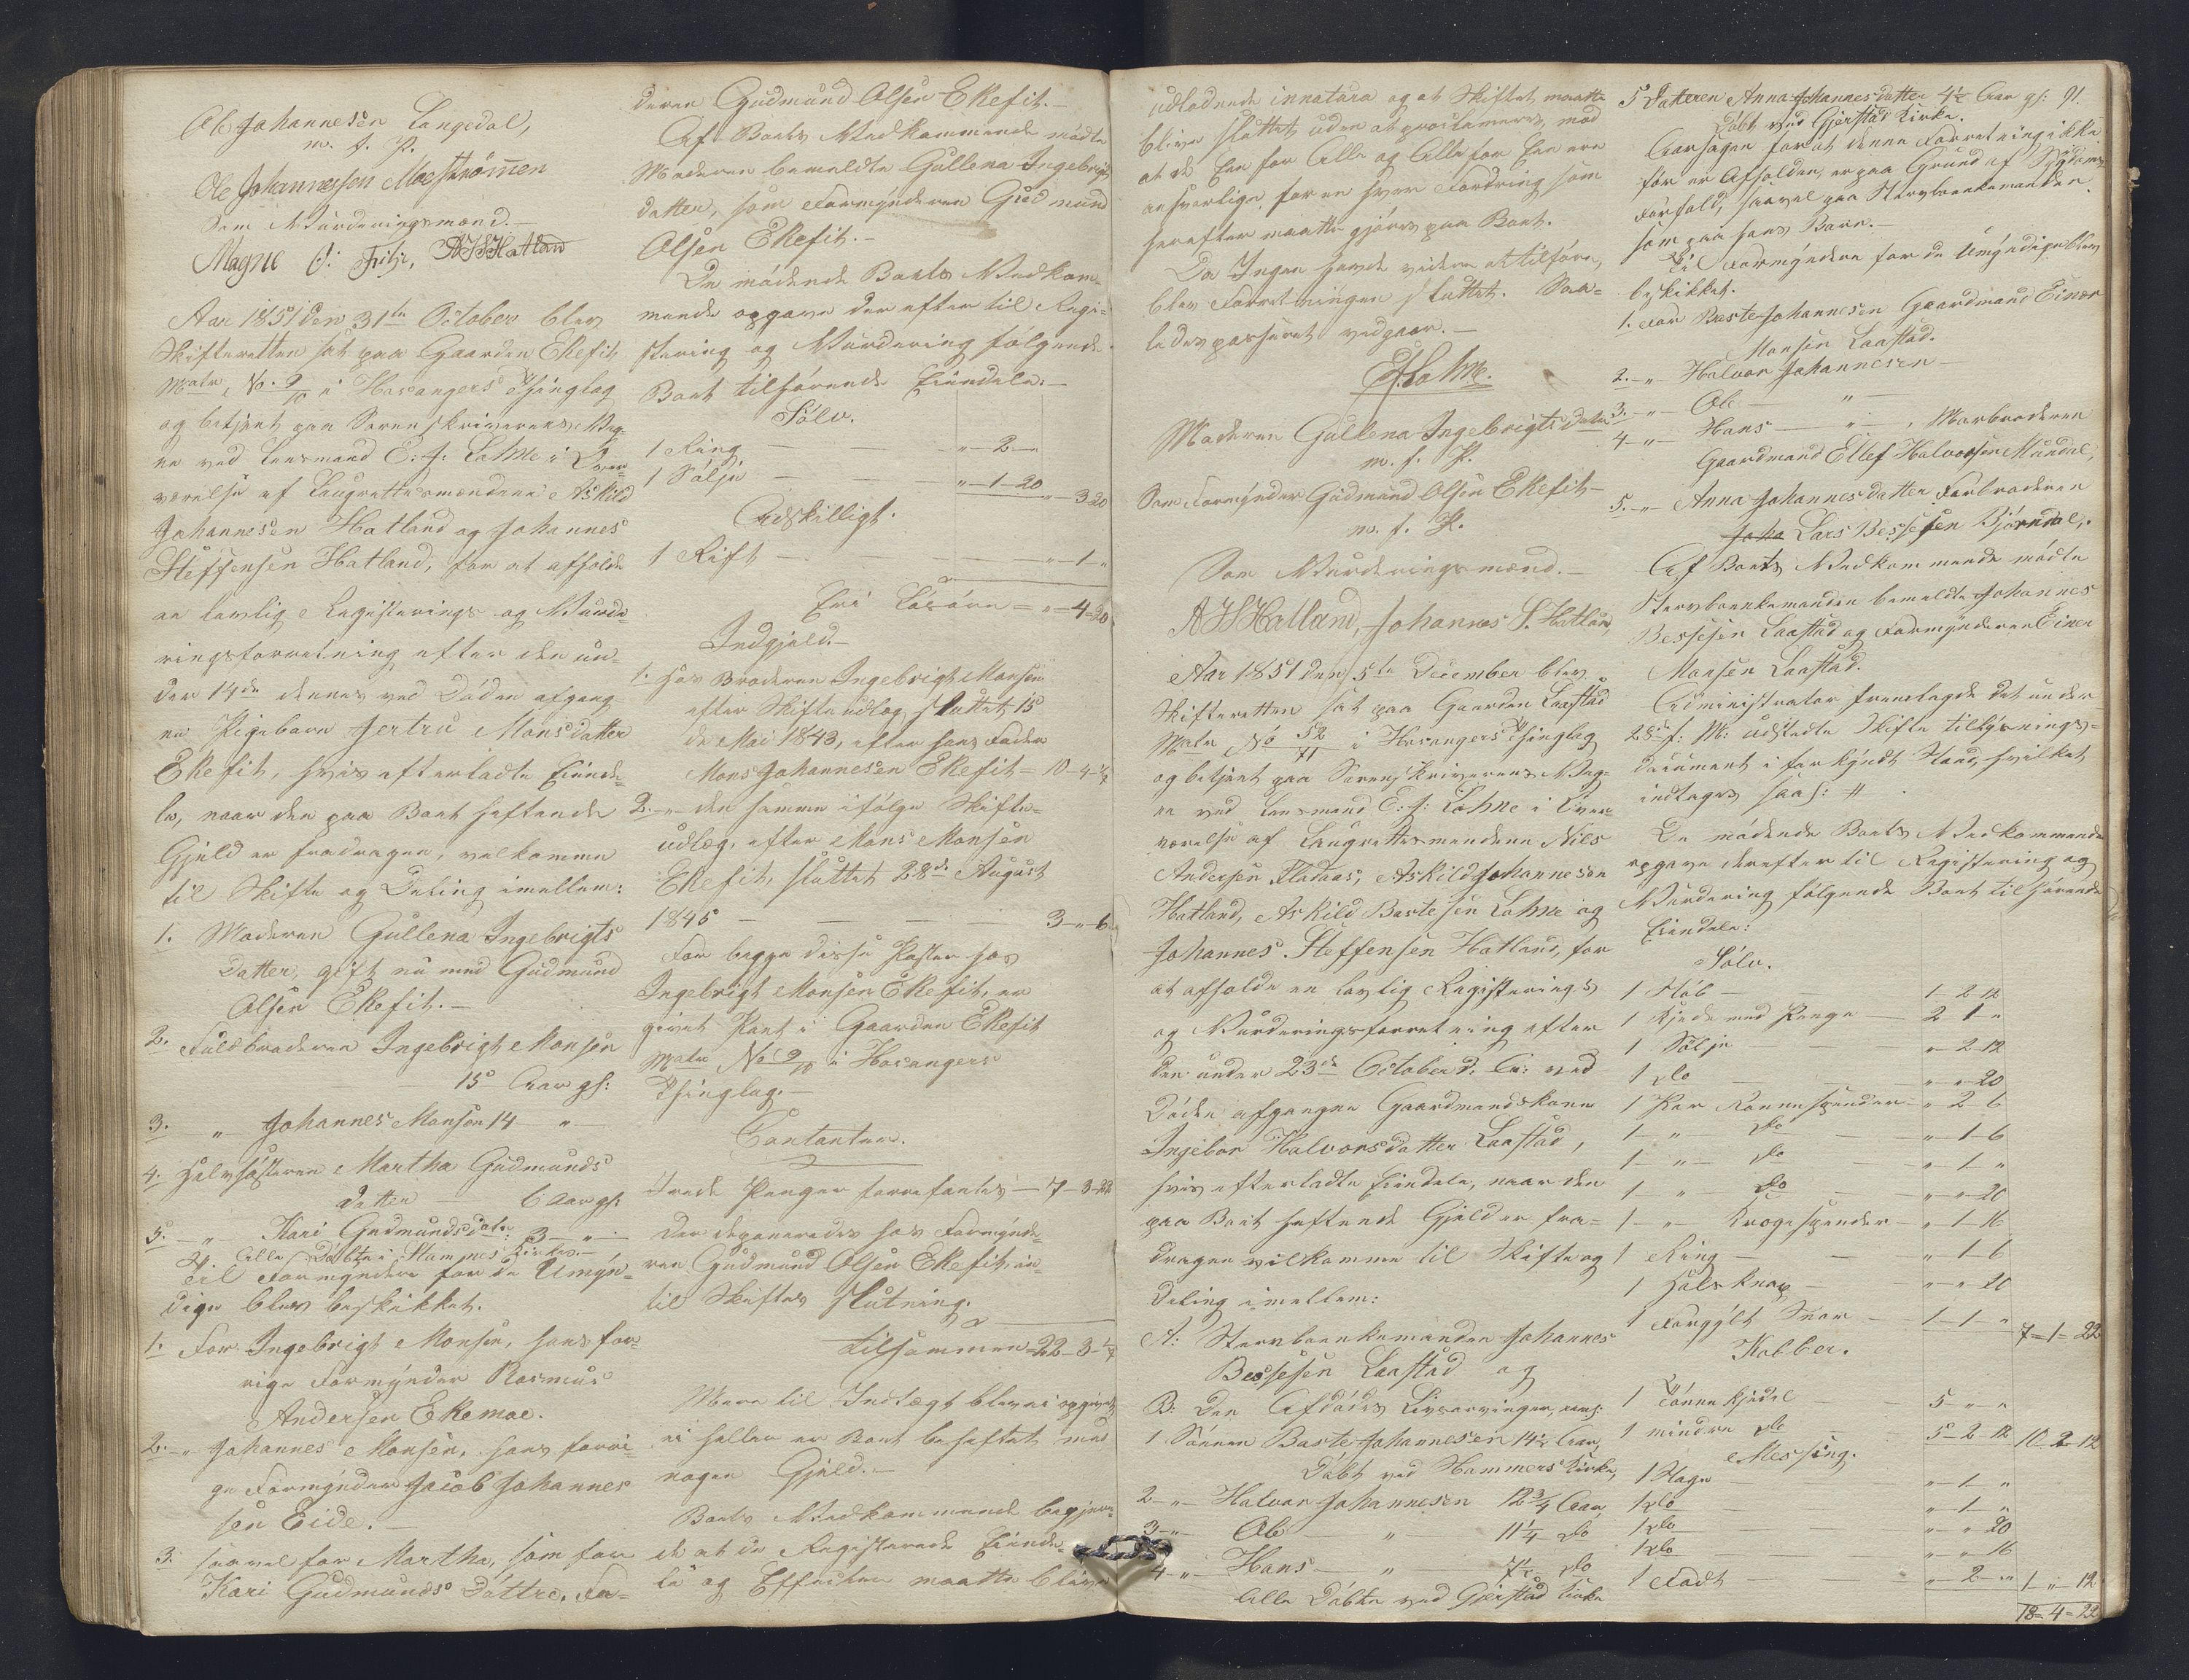 Ole Johannesen Langedal,
m. f. P.
Ole Johannessen Moeströmmen
Som Vurderingsmænd.
Magne O: Fitje, AJSHatland
Aar 1851 den 31te October blev
Skifteretten sat paa Gaarden Ekefit
Matr. No. 9/10 i Hosangers Thinglag
og betjent paa Sorenskriverens Veg-
ne ved Lensmand E: J: Lohne i Over-
værelse af Laugrettesmændene Askild
Johannesen Hatland og Johannes
Steffensen Hatland, for at afholde
en lovlig Registerings og Vurde-
ringsforretning efter den un-
der 14de dennes ved Döden afgang-
ne Pigebarn Jertru Monsdatter
Ekefit, hvis efterladte Eiende-
le, naar den paa Boet heftende
Gjeld er fradragen, velkomme
til Skifte og Deling imellem:
1. Moderen Gullena Ingebrigts
Datter, gift nu med Gudmund
Olsen Ekefit.
2. Fuldbroderen Ingebrigt Monsen
15 Aar gl:
3. " Johannes Monsen 14 "
4. Halvsösteren Martha Gudmunds
datter 6 Aar gl:
5. " Kari Gudmundsdatr: 3 "
Alle Döbte i Stamnes Kirke.
Til Formyndere for de Umyn-
dige blev beskikket.
1. For Ingebrigt Monsen, hans for-
rige Formynder Rasmus
Andersen Ekemoe.
2. " Johannes Monsen, hans forri-
ge Formynder Jacob Johannes
sen Eide.
3. saavel for Martha, som for
Kari Gudmunds Döttre, Fa-
deren Gudmund Olsen Ekefit.
Af Boets Vedkommende mödte
Moderen bemeldte Gullena Ingebrigts
datter, som Formynderen Gudmund
Olsen Ekefit.
De mödende Boets Vedkom-
mende opgave derefter til Regi-
stering og Vurdering fölgende
Boet tilhörende Eiendele:
Sölv.
1 Ring " 2 "
1 Sölje " 1 20 " 3 20
Adskilligt.
1 Kist " 1 "
Frie Lösöre = " = 4 = 20
Indgjeld.
1. hos Broderen Ingebrigt Monsen
efter Skifteudlæg sluttet 15
de Mai 1843, efter hans Fader
Mons Johannesen Ekefit = 10 - 4 - 1/2
2. " den samme ifölge Skifte-
udlæg, efter Mons Monsen
Ekefit, sluttet 28de August
1845 3 - " - 6
For begge disse Poster hos
Ingebrigt Monsen Ekefit, er
givet Pant i Gaarden Ekefit
Matr No 9/10 i Hosangers
Thinglag.
Contanter.
rede Penger forefantes 7 - 3 - 22
der deponeredes hos Formynde-
ren Gudmund Olsen Ekefit, in-
til Skiftes Slutning.
tilsammen 22 - 3 -
Mere til Indtægt blev ei opgivet,
ei heller er Boet beheftet med
nogen Gjeld.
Boets Vedkommende begjær-
de at de Registerede Eiende-
le og Effecter maatte blive
udlodende innatura og at Skiftet maatte
blive sluttet uden at proclameres, mod
at de Een for Alle og Alle for Een ere
ansvarlige for en hver Fordring som
herefter maatte gjöres paa Boet.
Da Ingen havde videre at tilföre,
blev Forretningen sluttet. Saa-
ledes passeret vedgaar.
EJLohne.
Moderen Gullena Ingebrigtsdatter
m. f. P.
Som Formynder Gudmund Olsen Ekefit
m. f. P.
Som Vurderingsmænd.
AJSHatland, Johannes S. Hatland,
Aar 1851 den 5te December blev
Skifteretten sat paa Gaarden Laastad
Matr No 52/71 i Hosangers Thinglag
og betjent paa Sorenskriverens Veg-
ne ved Lensmand E: J: Lohne i Over-
værelse af Laugrettesmændene Nils
Andersen Fladaas, Askild Johannesen
Hatland, Askild Bartesen Lohne og
Johannes Steffensen Hatland, for
at afholde en lovlig Registerings
og Vurderingsforretning efter
den under 23de October d: A: ved
Döden afgangne Gaardmandskone
Injebor Halvorsdatter Laastad,
hvis efterladte Eiendele, naar den
paa Boet heftende Gjeld er fra-
dragen vilkomme til Skifte og
Deling imellem:
A: Stervboenkemanden Johannes
Bessesen Laastad og
B: Den Afdödes Livsarvinger, nemf:
1 Sönnen Baste Johannesen 14 1/2 Aar,
Döbt ved Hammers Kirke,
2 " Halvor Johannesen 12 3/4 Aar,
3 " Ole " 11 1/4 do
4 " Hans " 7 1/2 do
Alle Döbte ved Gjerstad Kirke
5 Datteren Anna Johannesdatter 4 1/2 Aar gl: 91.
Döbt ved Gjerstad Kirke.
Aarsagen for at denne Forretning ikke
för er Afholden, er paa Grund af Sygdoms
Forfald, saavel paa Stervboenkemanden
som paa hans Barn.
Til Formyndere for de Umyndige blev
beskikket.
1. For Baste Johannesen Gaardmand Einar
Monsen Laastad.
2. " Halvor Johannesen
3. " Ole "
4 " Hans " , Morbroderen
Gaardmand Ellef Halvorsen Mundal,
5. " Anna Johannesdatter Farbroderen
Joha Lars Bessesen Bjørndal,
Af Boets Vedkommende mödte
Stervboenkemanden bemeldte Johannes
Bessesen Laastad og Formynderen Einer
Monsen Laastad.
Administrator fremlagde det under
28de f: M: udstedte Skifte tillysnings-
document i forkyndt Stand, hvilket
indtages saal: #
De mödende Boets Vedkommende
opgave derefter til Registering og
Vurdering fölgende Boet tilhörende
Eiendele:
Sölv.
1 Stöb 1 - 2 - 12
1 Kjede med Penge 2 1 "
1 Sölje " - 2 - 12
1 do " - " 20
1 Par Konnespender " 2 - 6
1 " do " 1 - 6
1 " do " 1 "
1 " do " " 20
1 " Krogespender " 1 - 16
1 Ring " 1 - 6
1 Halsknap " " 20
1 Forgylt Snor 1 - 1 " 7 = 1 = 22
Kobber.
1 Tönne kjedel 5 - " "
1 mindre do 5 - 2 - 12 10 - 2 - 12
Messing.
1 Stage " - 1 "
1 do " - 1 "
1 do " - " 20
1 do " " 16
1 Fadt " 2 - " 1 - " - 12
18 = 4 = 22